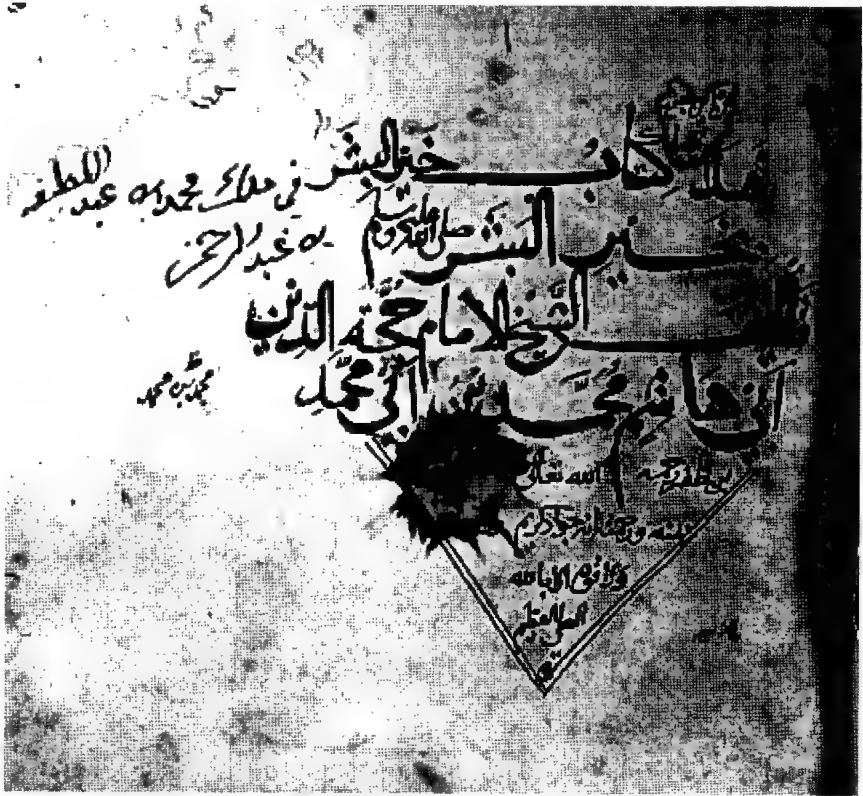 هذا كتاب خير البشر
بخير البشر صلى الله عليه وسلم
تأليف الشيخ الامام حجة الدين
أبي هاشم محمد بن أبي محمد
بن ظفر رحمه الله تعالى
بمنه ورحمته انه جواد كريم
ولا قوة الا بالله
العلي العظيم
في ملك محمد بن عبد اللطيف
بن عبد الرحمن
محمد بن محمد